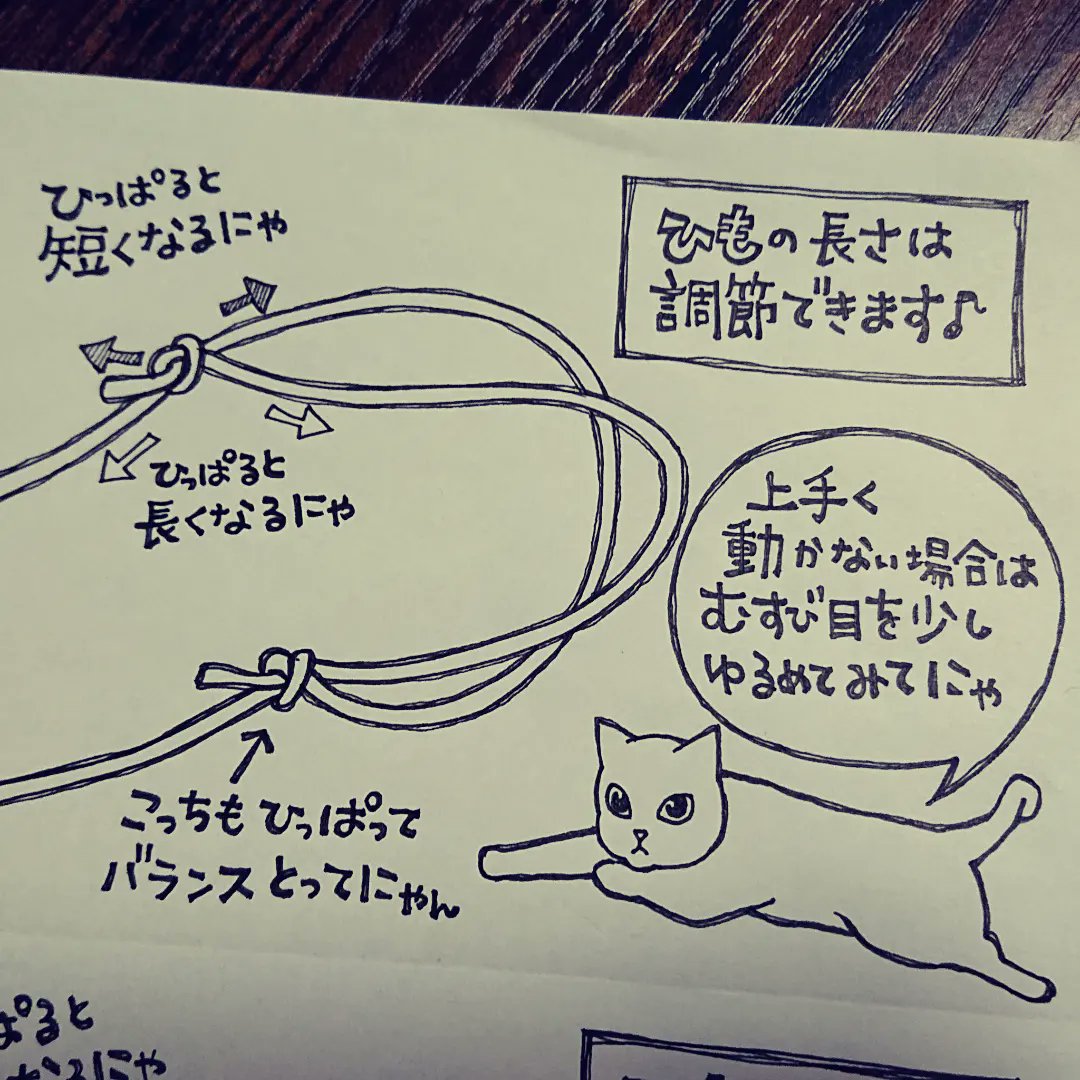 ひっぱると
短くなるにゃ
ひもの長さは
調節できます♪
ひっぱると
長くなるにゃ
上手く
動かない場合は
むすび目を少し
ゆるめてみてにゃ
こっちもひっぱって
バランスとってにゃん
ぱると
なるにゃ